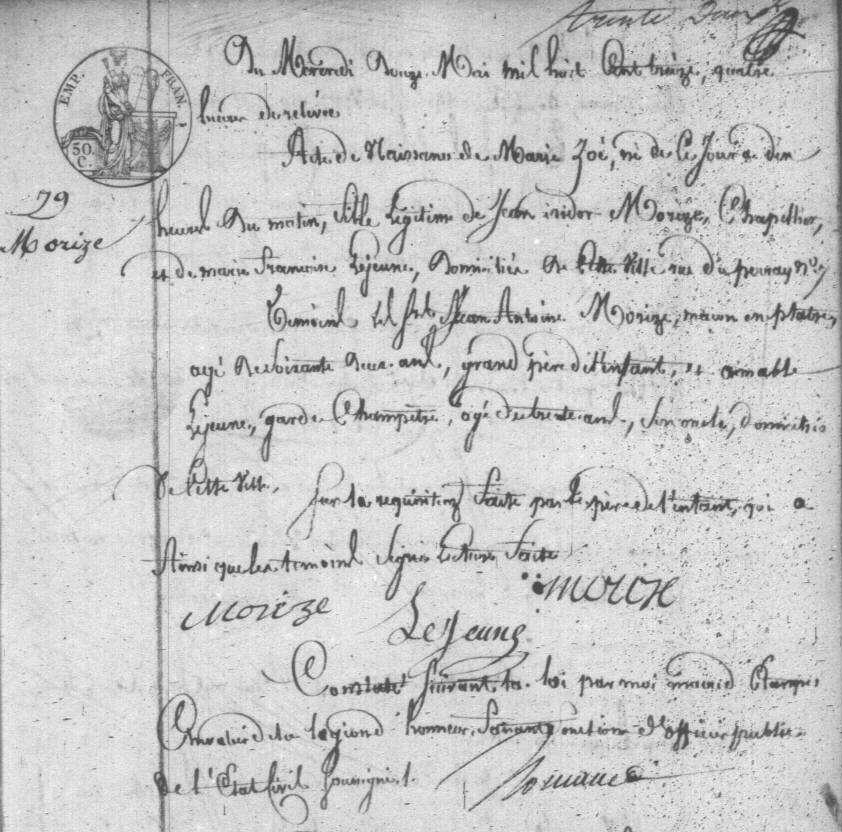 trente Deux
EMP. FRAN.
50. C.
Du Mercredi Douze Mai mil huit Cent treize, quatre
heures de relevée
Acte de Naissance de Marie Zoé, né de Ce Jour a dix
79
heures Du matin, fille légitime de Jean isidor Morize, Chapellier,
Morize
et de marie francoise Lejeune, Domiciliés De Cette Ville rue du perray n°. 7
Témoins Les Srs Jean Antoine Morize, macon en platre,
agé de Soixante Deux ans, grand père de l'enfant, et aimable
Lejeune, garde Champetre, agé de trente ans, Son oncle, domiciliés
De Cette Ville.
Sur la requisition faite par le père de l'enfant, qui a
Ainsi que les temoins Signé Lecture faite
Morize
morize
LeJeune
Constaté Suivant la loi par moi maire d'Etampes
de la legion d'honneur, faisant fonctions d'officier public
de l'Etat Civil Soussigné.